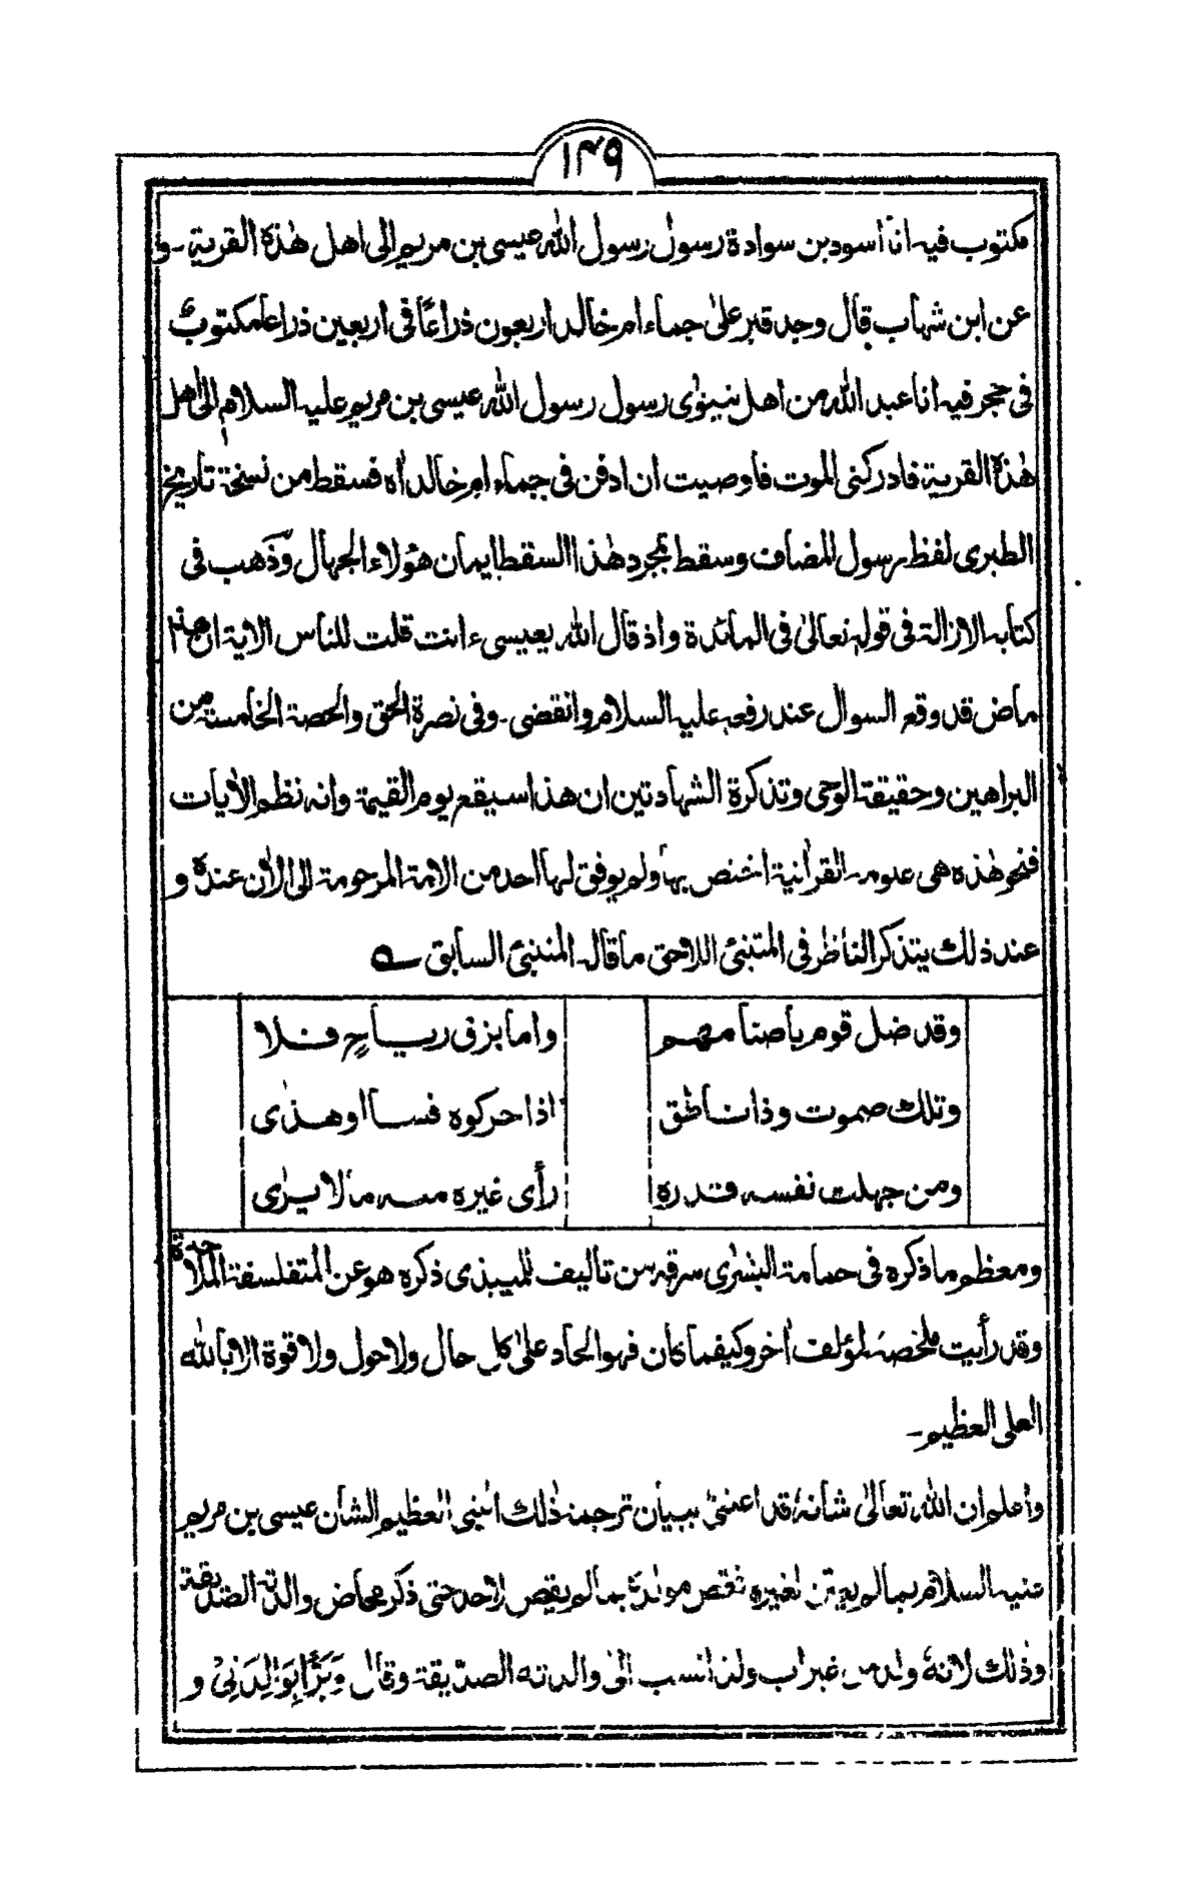 ۱۴۹
مكتوب فيه انا اسود بن سوادة رسول رسول الله عيسى بن مريم الى اهل هذه القرية ـ و
عن ابن شهاب قال وجد قبر على جماء ام خالد اربعون ذراعًا في اربعين ذراعا مكتوب
في حجر فيه انا عبد الله من اهل نينوى رسول رسول الله عيسى بن مريم عليه السلام الى اهل
هذه القرية فادركنى الموت فاوصيت ان ادفن فى جماء ام خالد اه فسقط من نسخة تاريخ
الطبرى لفظ رسول المضاف وسقط بمجرد هذا السقط ايمان هؤلاء الجهال وذهب فى
كتابه الازالة فى قوله تعالى فى المائدة واذ قال الله يعيسىء انت قلت للناس الاية ان هذا
ماض قد وقع السوال عند رفعه عليه السلام وانقضى ـ وفى نصرة الحق والحصة الخامسة من
البراهين وحقيقة الوحى وتذكرة الشهادتين ان هذا سيقع يوم القيمة وانه نظم الأيات
فنحو هذه هى علومه القرأنية اختص بها ولم يوفق لها احد من الامة المرحومة الى الأن عنده و
عند ذلك يتذكر الناظر فى المتنبئ اللاحق ما قاله المتنبئ السابق ؎
وقد ضل قوم باصنامهم
واما بزق رياحٍ فلا
وتلك صموت وذا ناطق
اذا حركوه فسا او هذى
ومن جهلت نفسه قدره
رأى غيره منه مالا يرى
ومعظم ما ذكره فى حمامة البشرى سرقه من تاليف للميبذى ذكره هو عن المتفلسفة الملاحدة
وقد رأيت ملخصه لمؤلف أخر وكيفما كان فهو الحاد على كل حال ولا حول ولا قوة الا بالله
العلى العظيم ـ
واعلم ان الله تعالى شانه قد اعتنى ببيان ترجمة ذلك النبى العظيم الشأن عيسى بن مريم
عليه السلام بمالم يعتن لغيره فقص مولده بمالم يقص لاحد حتى ذكر مخاض والدته الصديقة
وذلك لانه ولد من غير اب ولذا نسب الى والدته الصدّيقة وقال وَبَرًّا بِوَالِدَتِىْ و